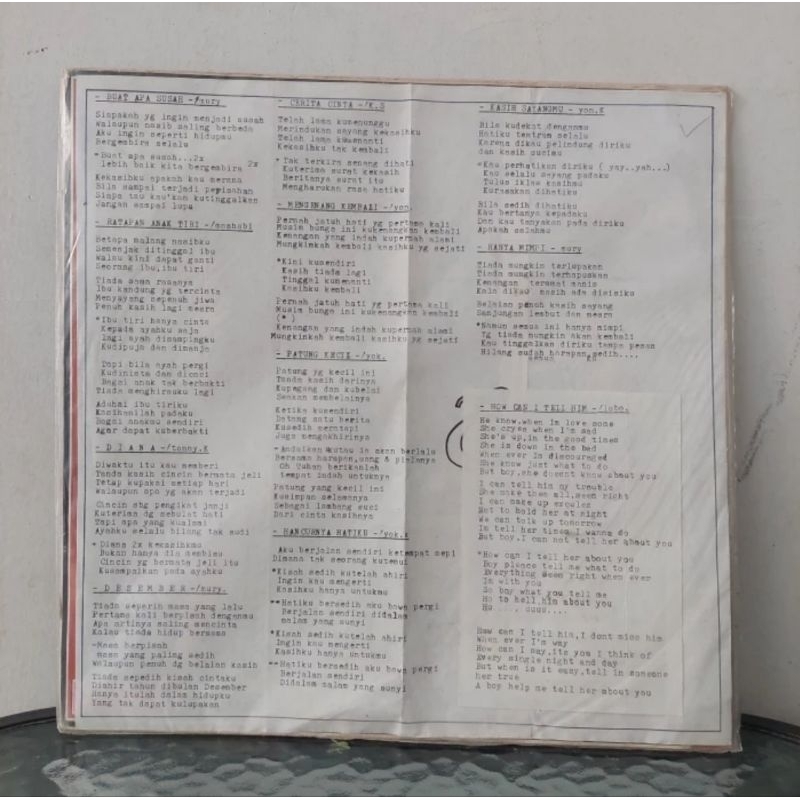 - BUAT APA SUSAH -/mury
Siapakah yg ingin menjadi susah
Walaupun nasib saling berbeda
Aku ingin seperti hidupmu
Bergembira selalu
*Buat apa susah...2x
lebih baik kita bergembira 2x
Kekasihku apakah kau merana
Bila sampai terjadi perpisahan
Siapa tau kau'kan kutinggalkan
Jangan sampai lupa
- RATAPAN ANAK TIRI -/mashabi
Betapa malang nasibku
Semenjak ditinggal ibu
Walau kini dapat ganti
Seorang ibu, ibu tiri
Tiada sama rasanya
Ibu kandung yg tercinta
Menyayang sepenuh jiwa
Penuh kasih lagi mesra
*Ibu tiri hanya cinta
Kepada ayahku saja
lagi ayah disampingku
Kudipuja dan dimanja
Tapi bila ayah pergi
Kudinista dan dicaci
Bagai anak tak berbakti
Tiada menghirauku lagi
Aduhai ibu tiriku
Kasihanilah padaku
Bagai anakmu sendiri
Agar dapat kuberbakti
- D I A N A -/tonny.K
Diwaktu itu kau memberi
Tanda kasih cincin bermata jeli
Tetap kupakai setiap hari
Walaupun apa yg akan terjadi
Cincin sbg pengikat janji
Kuterima dg sebulat hati
Tapi apa yang kualami
Ayahku selalu bilang tak sudi
*Diana 2x kekasihku
Bukan hanya dia
Cincin yg bermata jeli itu
Kusampaikan pada ayahku
- D E S E M B E R -/mury.
Tiada seperih masa yang lalu
Pertama kali berpisah denganmu
Apa artinya saling mencinta
Kalau tiada hidup bersama
-Masa berpisah
masa yang paling sedih
Walaupun penuh dg belaian kasih
Tiada sepedih kisah cintaku
Diahir tahun dibulan Desember
Hanya itulah dalam hidupku
Yang tak dapat kulupakan
- CERITA CINTA -/K.S
Telah lama kumenunggu
Merindukan sayang kekasihku
Telah lama kumenanti
Kekasihku tak kembali
* Tak terkira senang dihati
Kuterima surat kekasih
Beritanya surat itu
Mengharukan rasa hatiku
- MENGENANG KEMBALI -/yon.
Pernah jatuh hati yg pertama kali
Musim bunga ini kukenangkan kembali
Kenangan yang indah kupernah alami
Mungkinkah kembali kasihku yg sejati
*Kini kusendiri
Kasih tiada lagi
Tinggal kumenanti
Kasihku kembali
Pernah jatuh hati yg pertama kali
Musim bunga ini kukenangkan kembali
(*)
Kenangan yang indah kupernah alami
Mungkinkah kembali kasihku yg sejati
- PATUNG KECIL -/yok.
Patung yg kecil ini
Tanda kasih darinya
Kupegang dan kubelai
Seakan membelainya
Ketika kusendiri
Datang satu berita
Kusedih meratapi
Juga mengakhirinya
- Andaikan waktu ia akan berlalu
Bersama harapan,uang & pialanya
Oh Tuhan berikanlah
tempat indah untuknya
Patung yang kecil ini
Kusimpan selamanya
Sebagai lambang suci
Dari cinta kasihnya
- HANCURNYA HATIKU -/yok.K
Aku berjalan sendiri ketempat sepi
Dimana tak seorang kutemui
*Kisah sedih kutelah ahiri
Ingin kau mengerti
Kasihku hanya untukmu
**Hatiku bersedih aku bawa pergi
Berjalan sendiri didalam
malam yang sunyi
*Kisah sedih kutelah ahiri
Ingin kau mengerti
Kasihku hanya untukmu
**Hatiku bersedih aku bawa pergi
Berjalan sendiri
Didalam malam yang sunyi
- KASIH SAYANGMU - yon.K
Bila kudekat denganmu
Hatiku tentram selalu
Karena dikau pelindung diriku
dan kasih sucimu
*Kau perhatikan diriku ( yay..yah...)
Kau selalu sayang padaku
Tulus iklas kasihmu
Kurasakan dihatiku
Bila sedih dihatiku
Kau bertanya kepadaku
Dan kau tanyakan pada diriku
Apakah salahmu
- HANYA MIMPI - mury
Tiada mungkin terlupakan
Tiada mungkin terhapuskan
Kenangan teramat manis
Kala dikau masih ada disisiku
Belaian penuh kasih sayang
Sanjungan lembut dan mesra
*Namun semua ini hanya mimpi
Yg tiada mungkin akan kembali
Kau tinggalkan diriku tanpa pesan
Hilang sudah harapan sedih....
semua
- HOW CAN I TELL HIM -/lobo.
He know,when Im love some
She cryes when I'm sad
She's up,in the good times
She in down in the bad
When ever Im discouraged
She know just what to do
But boy,she doesnt know about you
I can tell him my trouble
She make them all,seem right
I can make up excules
Not to hold her at night
We can tolk up tomorrow
Im tell her times I wanna do
But boy.I can not tell her about you
*How can I tell her about you
Boy pleace tell me what to do
Everything seem right when ever
Im with you
So boy what you tell me
Ho to tell him about you
Ho ... uuuu....
How can I tell him,I dont miss him
When ever I'm way
How can I say,its you I think of
Every single night and day
But when is it easy,tell in someone
her true
A boy help me tell her about you